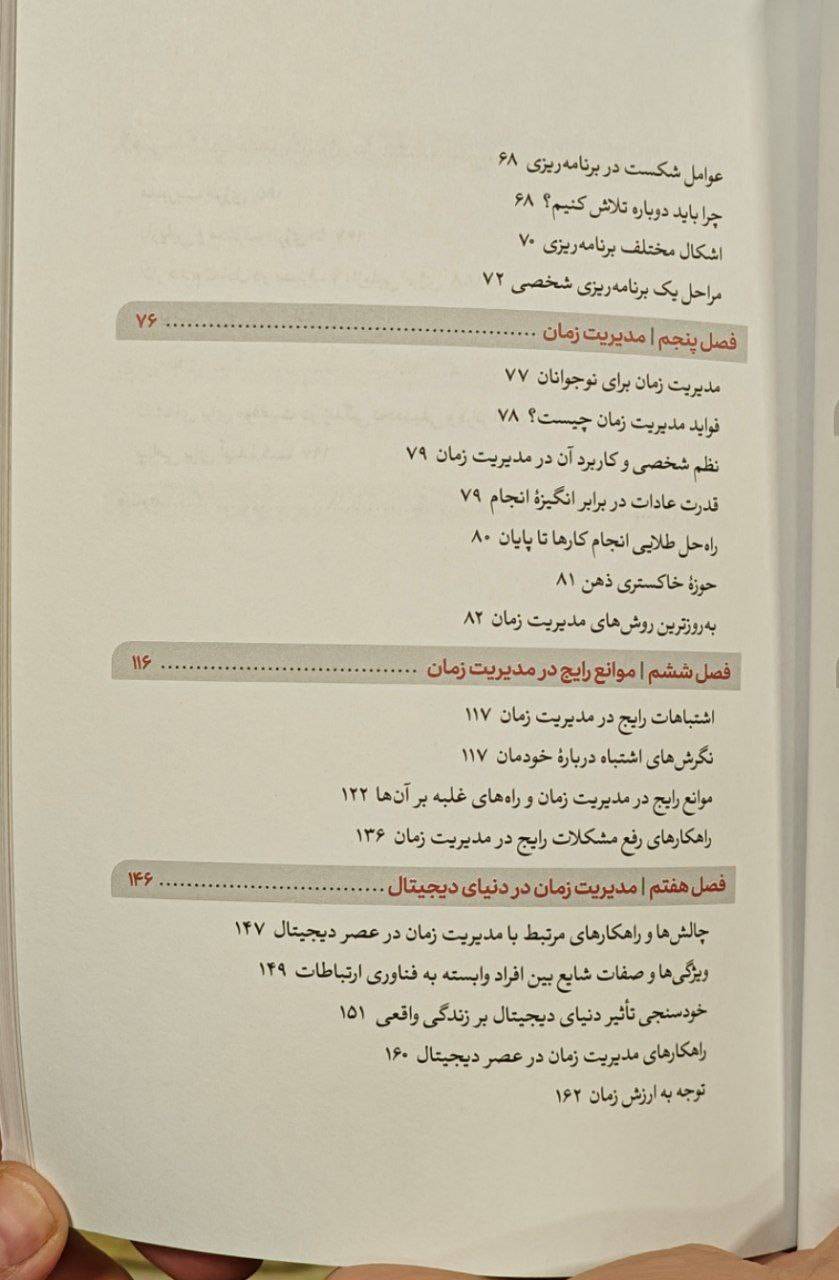 عوامل شکست در برنامه‌ریزی ۶۸
چرا باید دوباره تلاش کنیم؟ ۶۸
اشکال مختلف برنامه‌ریزی ۷۰
مراحل یک برنامه‌ریزی شخصی ۷۲
فصل پنجم | مدیریت زمان ........................................ ۷۶
مدیریت زمان برای نوجوانان ۷۷
فواید مدیریت زمان چیست؟ ۷۸
نظم شخصی و کاربرد آن در مدیریت زمان ۷۹
قدرت عادات در برابر انگیزهٔ انجام ۷۹
راه‌حل طلایی انجام کارها تا پایان ۸۰
حوزهٔ خاکستری ذهن ۸۱
به‌روزترین روش‌های مدیریت زمان ۸۲
فصل ششم | موانع رایج در مدیریت زمان ............................ ۱۱۶
اشتباهات رایج در مدیریت زمان ۱۱۷
نگرش‌های اشتباه دربارهٔ خودمان ۱۱۷
موانع رایج در مدیریت زمان و راه‌های غلبه بر آن‌ها ۱۲۲
راهکارهای رفع مشکلات رایج در مدیریت زمان ۱۳۶
فصل هفتم | مدیریت زمان در دنیای دیجیتال ........................ ۱۴۶
چالش‌ها و راهکارهای مرتبط با مدیریت زمان در عصر دیجیتال ۱۴۷
ویژگی‌ها و صفات شایع بین افراد وابسته به فناوری ارتباطات ۱۴۹
خودسنجی تأثیر دنیای دیجیتال بر زندگی واقعی ۱۵۱
راهکارهای مدیریت زمان در عصر دیجیتال ۱۶۰
توجه به ارزش زمان ۱۶۲